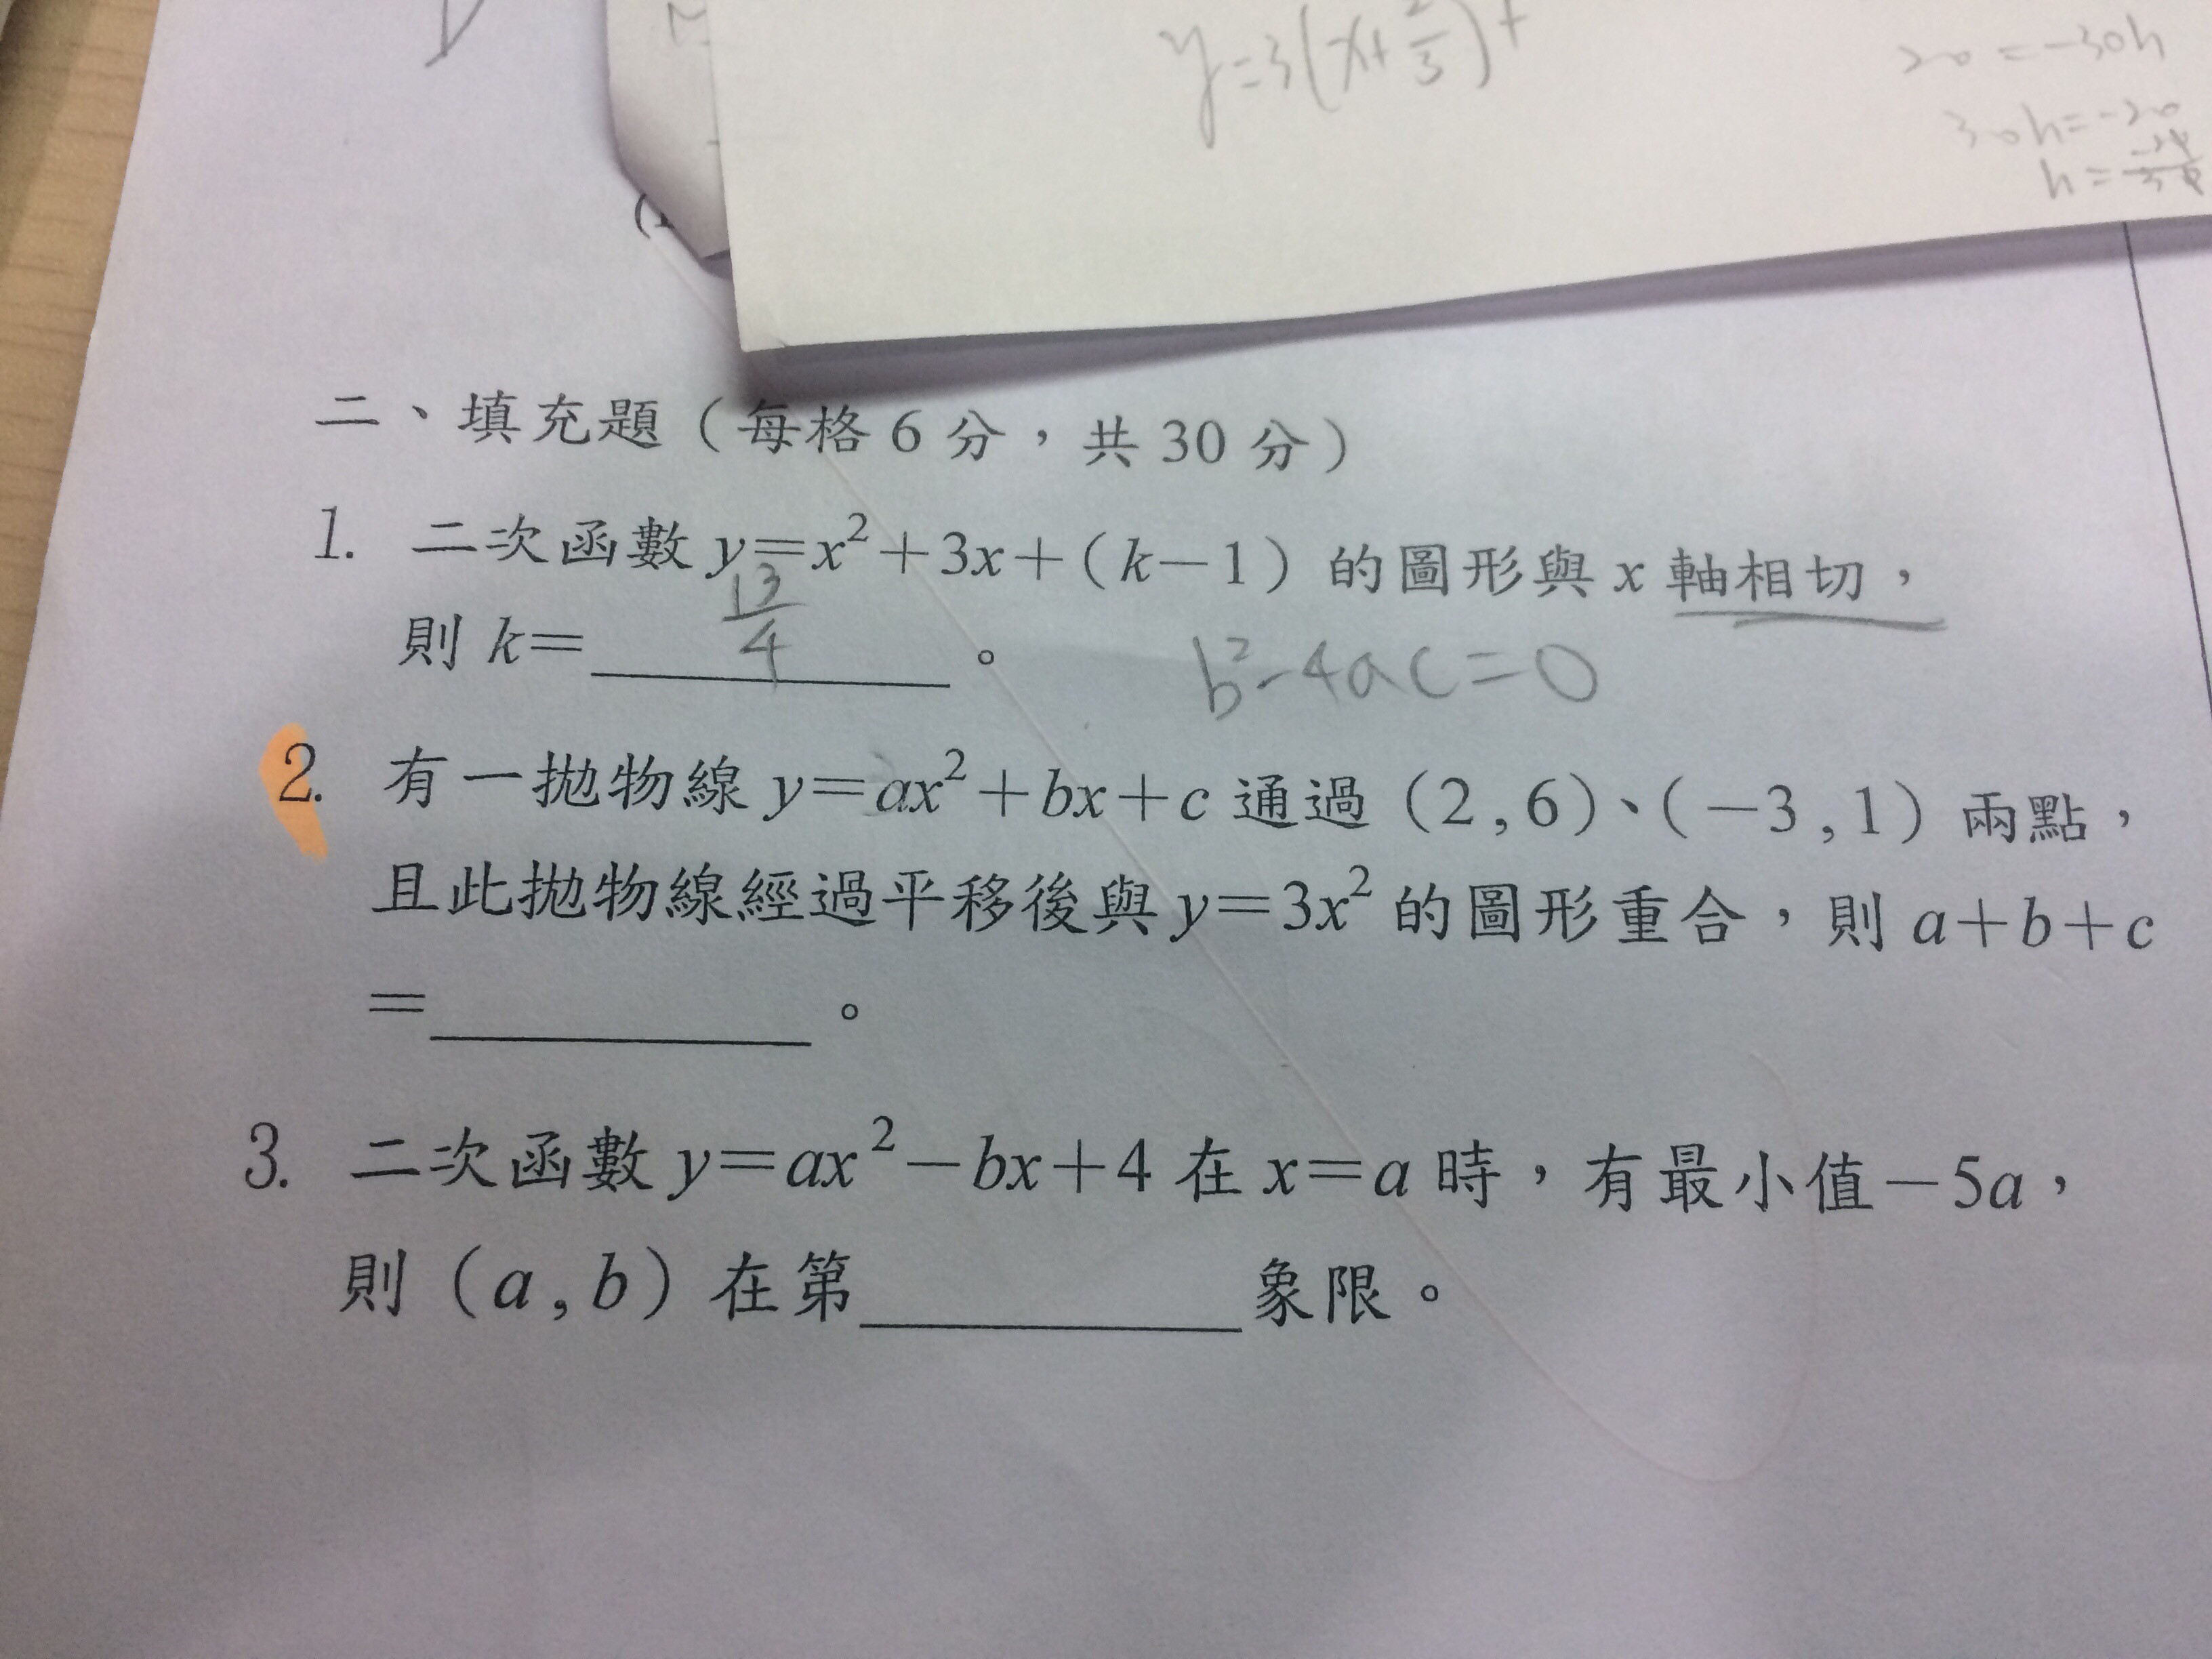 y=3(x+2/3)+
20=-30h
30h=-20
h=
二、填充題(每格6分,共30分)
1. 二次函數 y=x²+3x+(k-1)的圖形與 x 軸相切,
則 k= 13/4 。
b²-4ac=0
2. 有一拋物線 y=ax²+bx+c 通過(2,6)、(-3,1)兩點,
且此拋物線經過平移後與 y=3x² 的圖形重合,則 a+b+c
=______。
3. 二次函數 y=ax²-bx+4 在 x=a 時,有最小值-5a,
則(a,b)在第______象限。